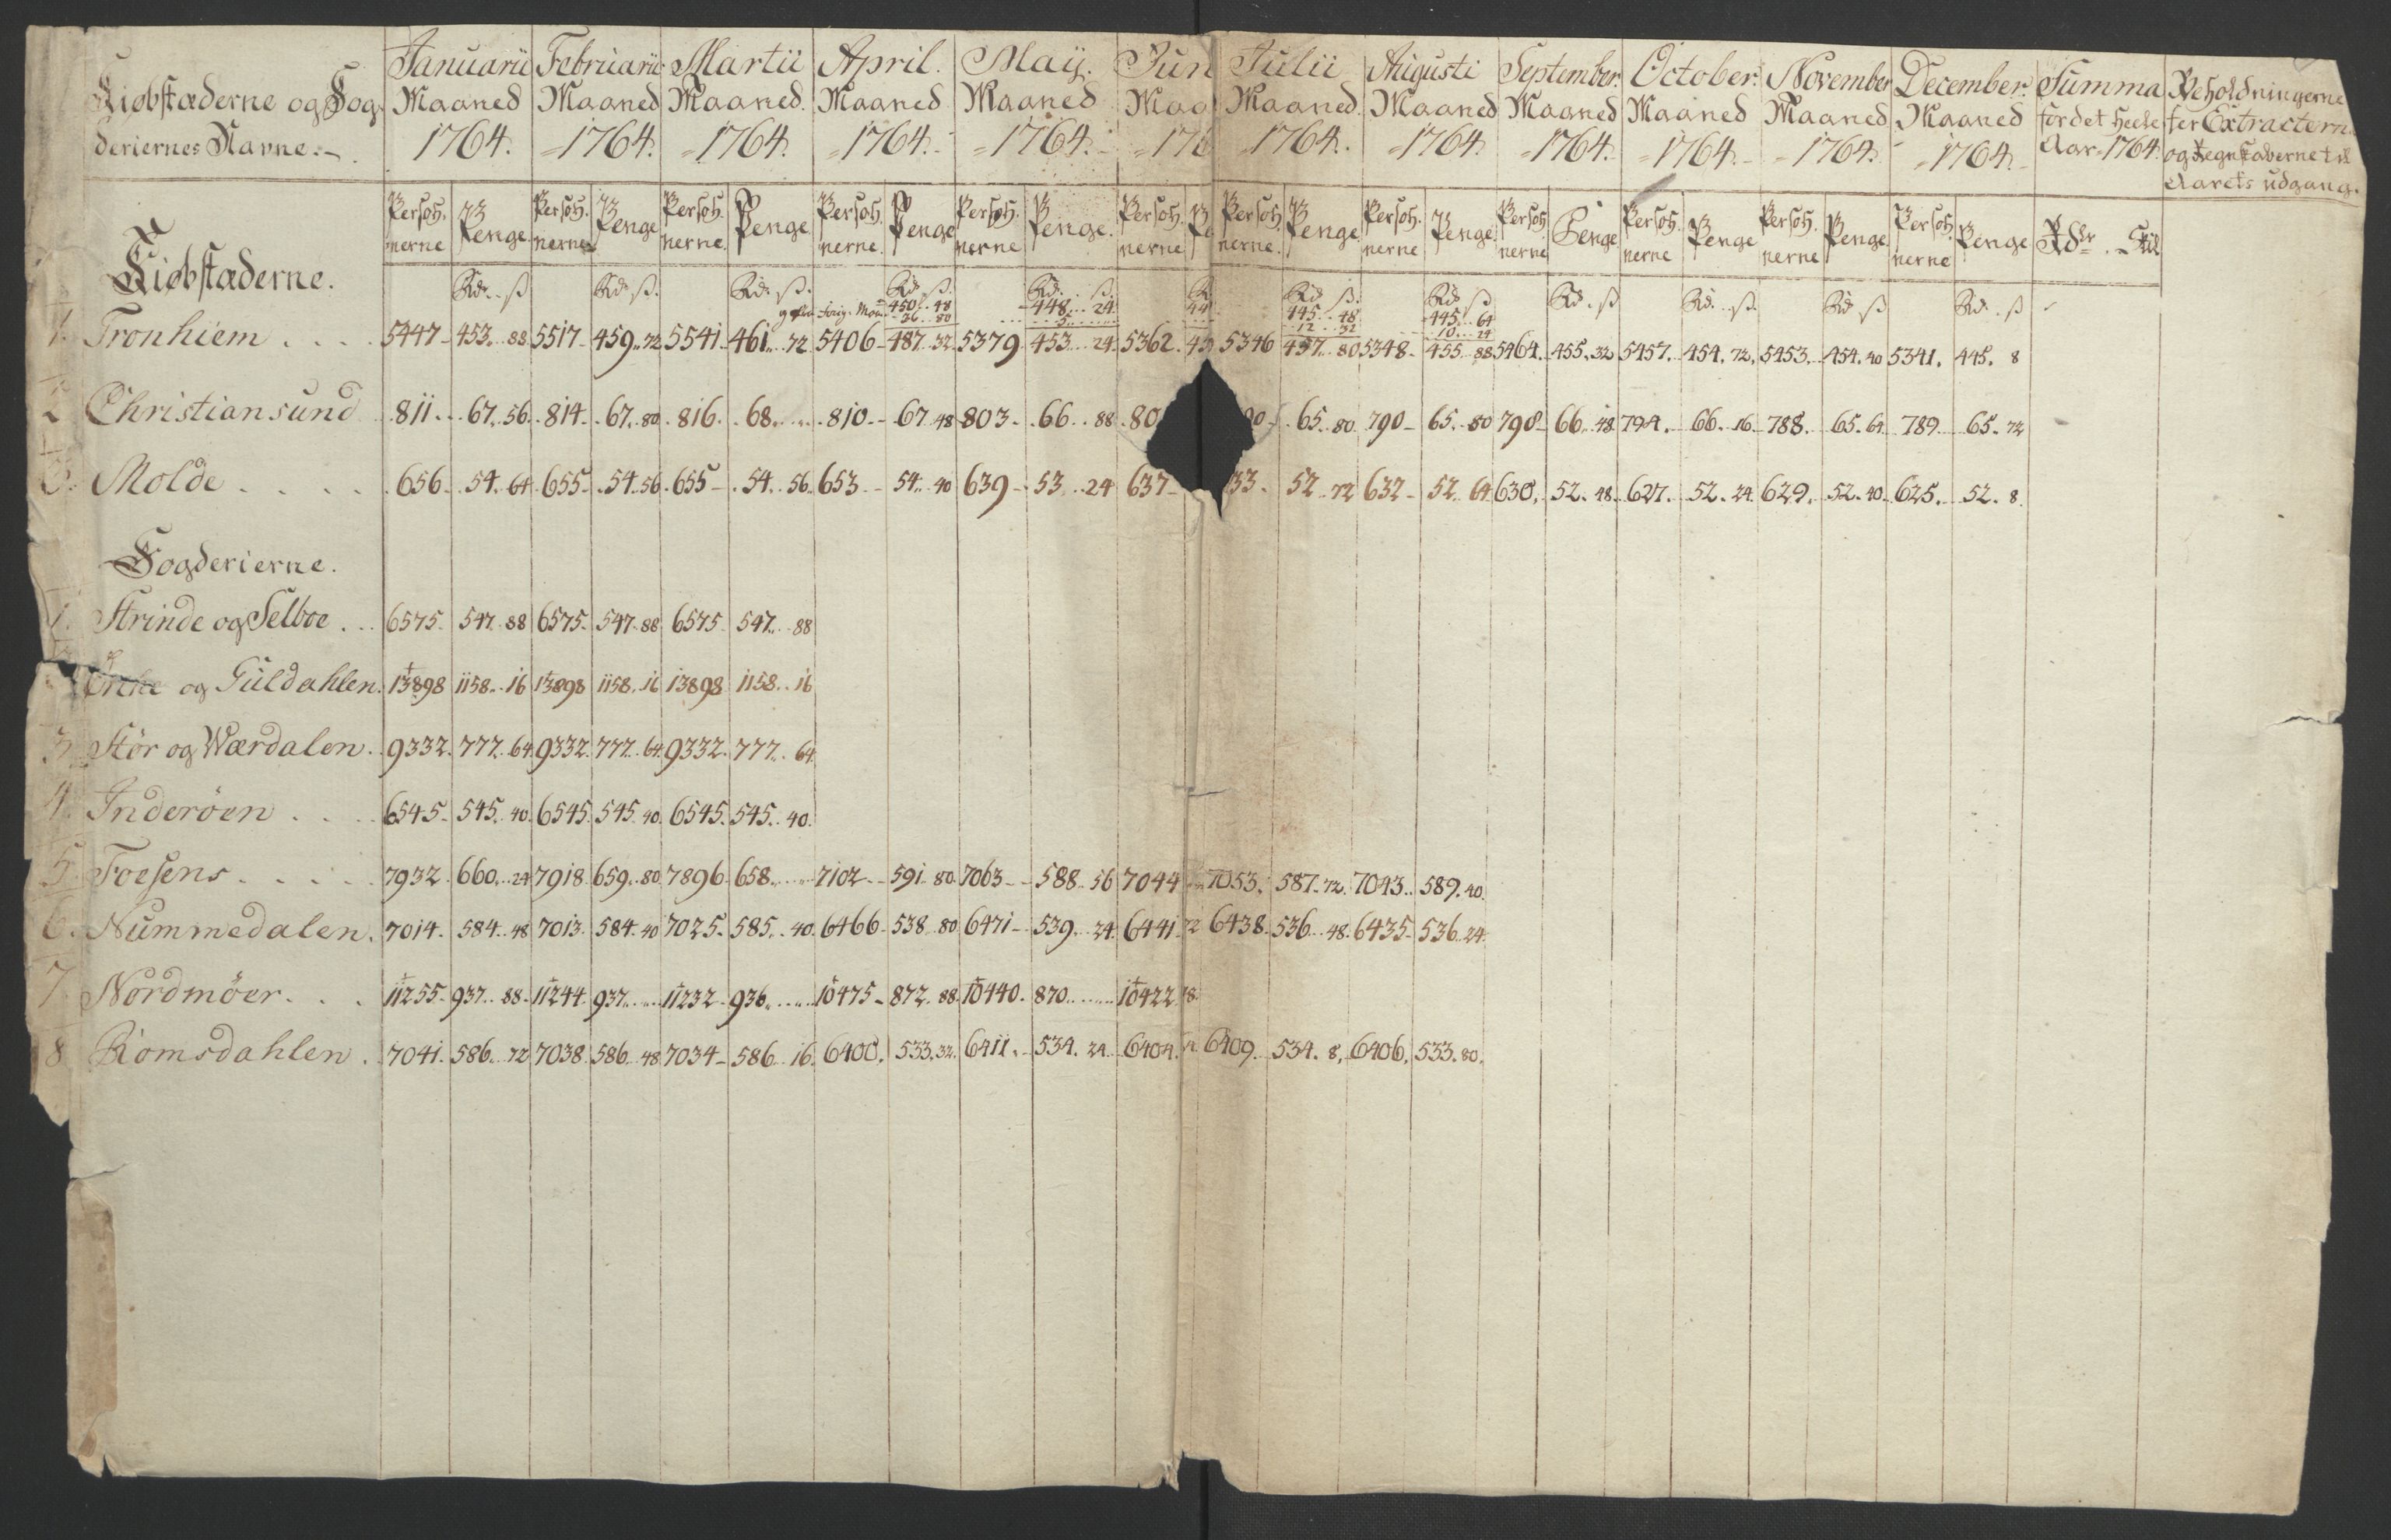 Januarii Februarii Martii April. Maij. Jun Julii Augusti September. October. November December. Summa Beholdningerne
Kiøbstæderne og Fog Maaned Maaned Maaned. Maaned Maaned Maa Maaned. Maaned Maaned Maaned Maaned Maaned for det heele Extracterne
deriernes Navne. 1764. 1764. 1764. 1764. 1764. 176 1764. 1764. 1764. 1764. 1764. 1764. Aar 1764. og Regnskaberne til
Aarets udgang.
Persoh. Penge Persoh. Penge Persoh. Penge Persoh. Penge Persoh. Penge. Persoh. Pe Persoh. Penge Persoh. Penge Persoh. Penge Persoh. Penge Persoh. Penge Persoh. Penge Rdlr. Skil
nerne nerne nerne nerne. nerne nerne nerne. nerne nerne nerne nerne nerne
Kiøbstæderne.
Rd. ß Rd. ß. Rd. ß. Rd. ß. Rd. ß. R Rd. ß. Rd. ß Rd. ß Rd. ß. Rd. ß Rd. ß
450. 48 448. 24. 44 445. 48 445. 64
36. 80 5 12. 32 10. 24
1. Tronhiem 5447 453. 88 5517 459. 72 5541 461. 72 5406 487. 32 5379 453. 24 5362. 45 5346 457. 80 5348 455. 88 5464. 455. 32 5457. 454. 72. 5453. 454. 40 5341. 445. 8
2 Christiansund 811. 67. 56. 814. 67. 80. 816. 68. 810. 67. 48 803. 66. 88 80 90 65. 80. 790 65. 80 798 66. 48 794. 66. 16. 788. 65. 64. 789. 65. 72
3. Molde 656. 54. 64 655. 54. 56. 655 54. 56. 653 54. 40 639 53. 24 637 33. 52. 72 632 52. 64 630. 52. 48. 627. 52. 24. 629. 52. 40. 625. 52. 8.
Fogderierne.
1. Strinde og Selboe 6575. 547. 88 6575. 547. 88 6575 547. 88
og Guldahlen. 13898 1158. 16 13898 1158. 16 13898 1158. 16
3 Stør og Wærdalen. 9332. 777. 64 9332. 777. 64. 9332. 777. 64
4. Inderøen 6545. 545. 40. 6545. 545. 40. 6545. 545. 40.
5. Foesens 7932. 660. 24 7918. 659. 80. 7896. 658. 7102 591. 80. 7063 588. 56 7044 7053. 587. 72. 7043. 589. 40.
6. Nummedalen. 7014. 584. 48 7013. 584. 40 7025. 585. 40. 6466 538. 80. 6471 539. 24. 6441. 72 6438. 536. 48. 6435. 536. 24.
7 Nordmöer. 11255. 937. 88. 11244. 937. 11232 936. 10475 872. 88. 10440. 870. 10422. 48.
8 Romsdahlen. 7041. 586. 72 7038. 586. 48 7034 586. 16. 6400. 533. 32. 6411. 534. 24. 6404. 6409. 534. 8. 6406. 533. 80.